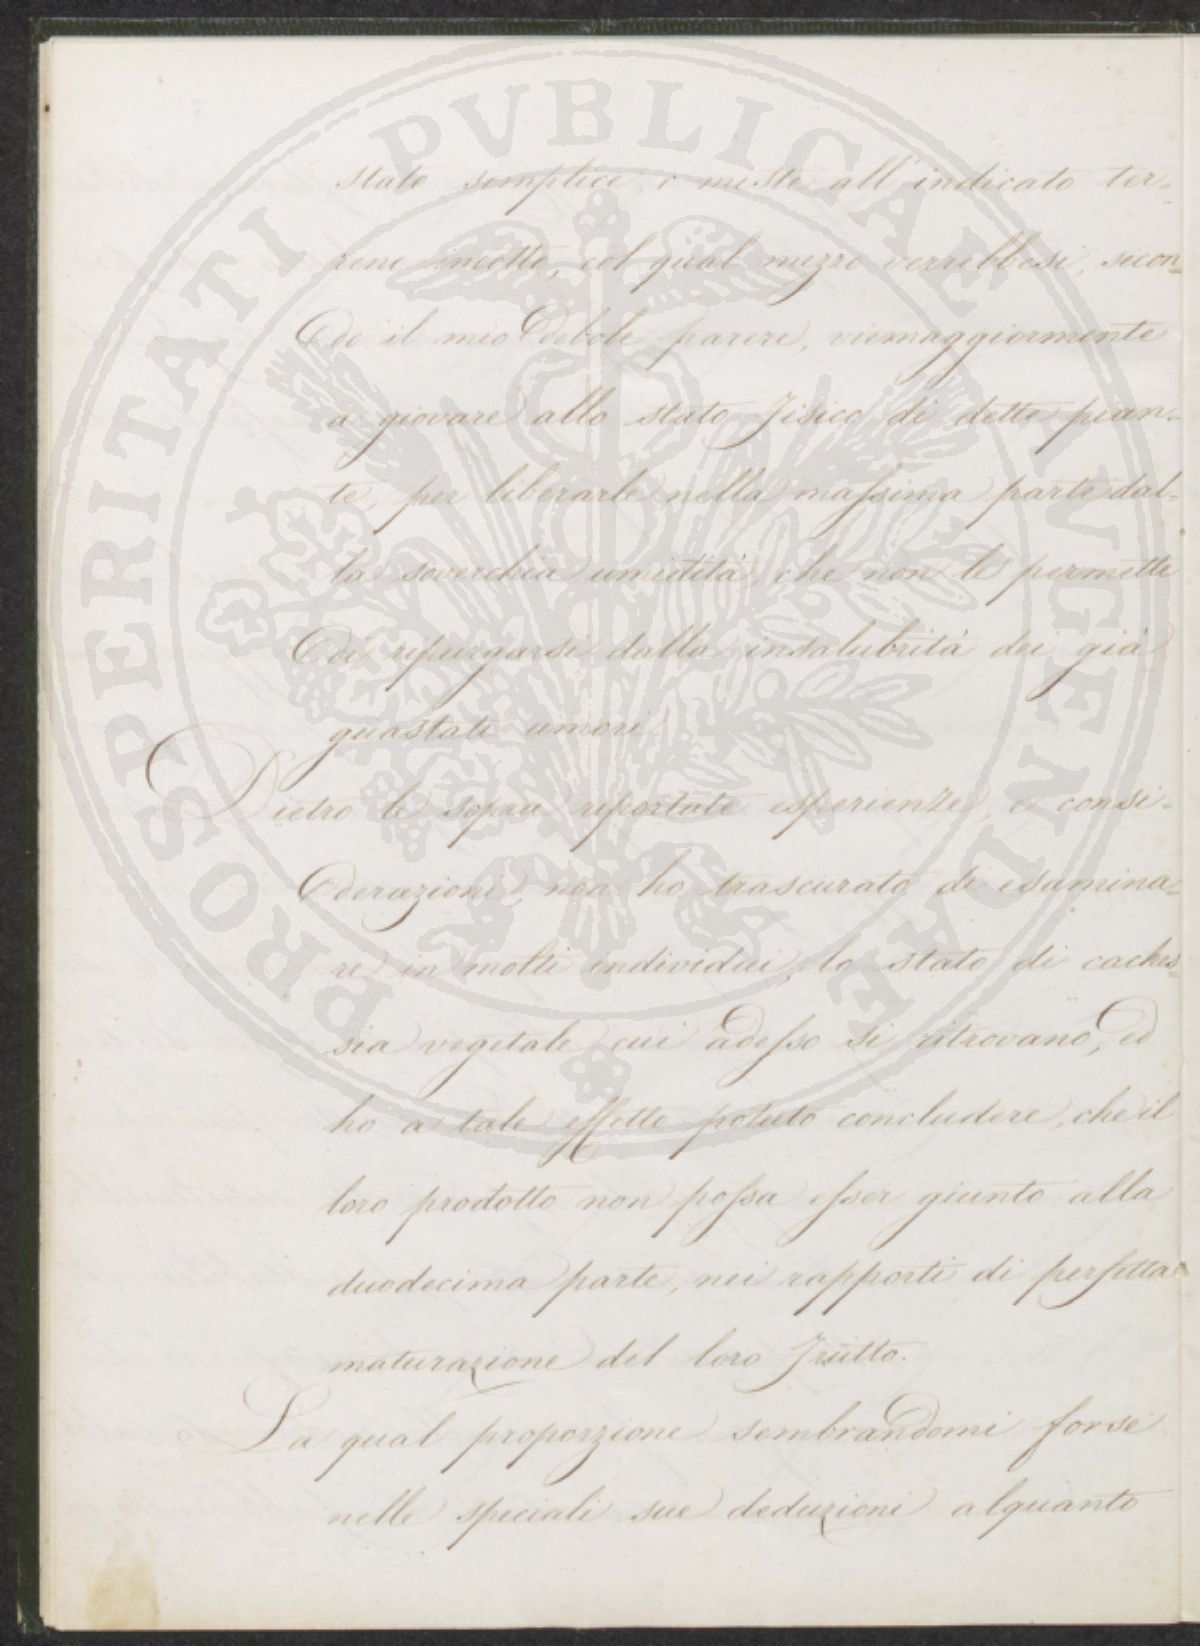 stato semplice, o misto all'indicato ter-
reno incotto, col qual mezzo verrebbesi, secon-
do il mio debole parere, viemaggiormente
a giovare allo stato fisico di dette pian-
te, per liberarle nella massima parte dal-
la soverchia umidità, che non le permette
di ripurgarsi dalla insalubrità dei già
guastati umori.
Dietro le sopra riportate esperienze, e consi-
derazioni, non ho trascurato di esamina-
re in molti individui, lo stato di caches-
sia vegetale cui adesso si ritrovano, ed
ho a tale effetto potuto concludere, che il
loro prodotto non possa esser giunto alla
duodecima parte, nei rapporti di perfetta
maturazione del loro frutto.
La qual proporzione sembrandomi forse
nelle speciali sue deduzioni alquanto
PROSPERITATI PVBLICAE AVGENDAE